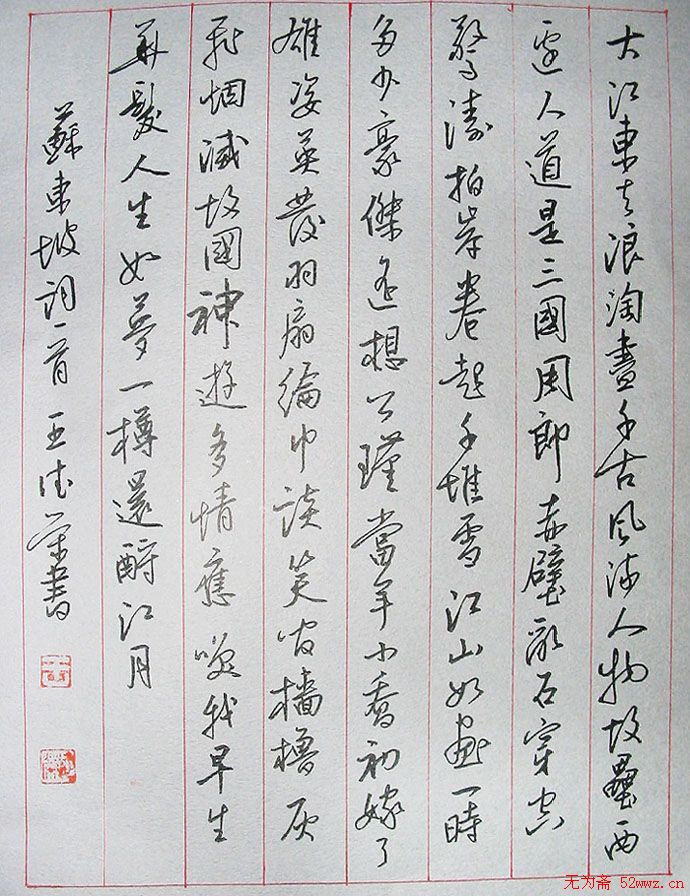 大江東去浪淘盡千古風流人物故壘西
邊人道是三國周郎赤壁亂石穿空
驚濤拍岸卷起千堆雪江山如畫一時
多少豪傑遙想公瑾當年小喬初嫁了
雄姿英發羽扇綸巾談笑間檣櫓灰
飛烟滅故國神遊多情應咲我早生
華髮人生如夢一樽還酹江月
蘇東坡詞一首 王德榮書
无为斋 52wwz.cn